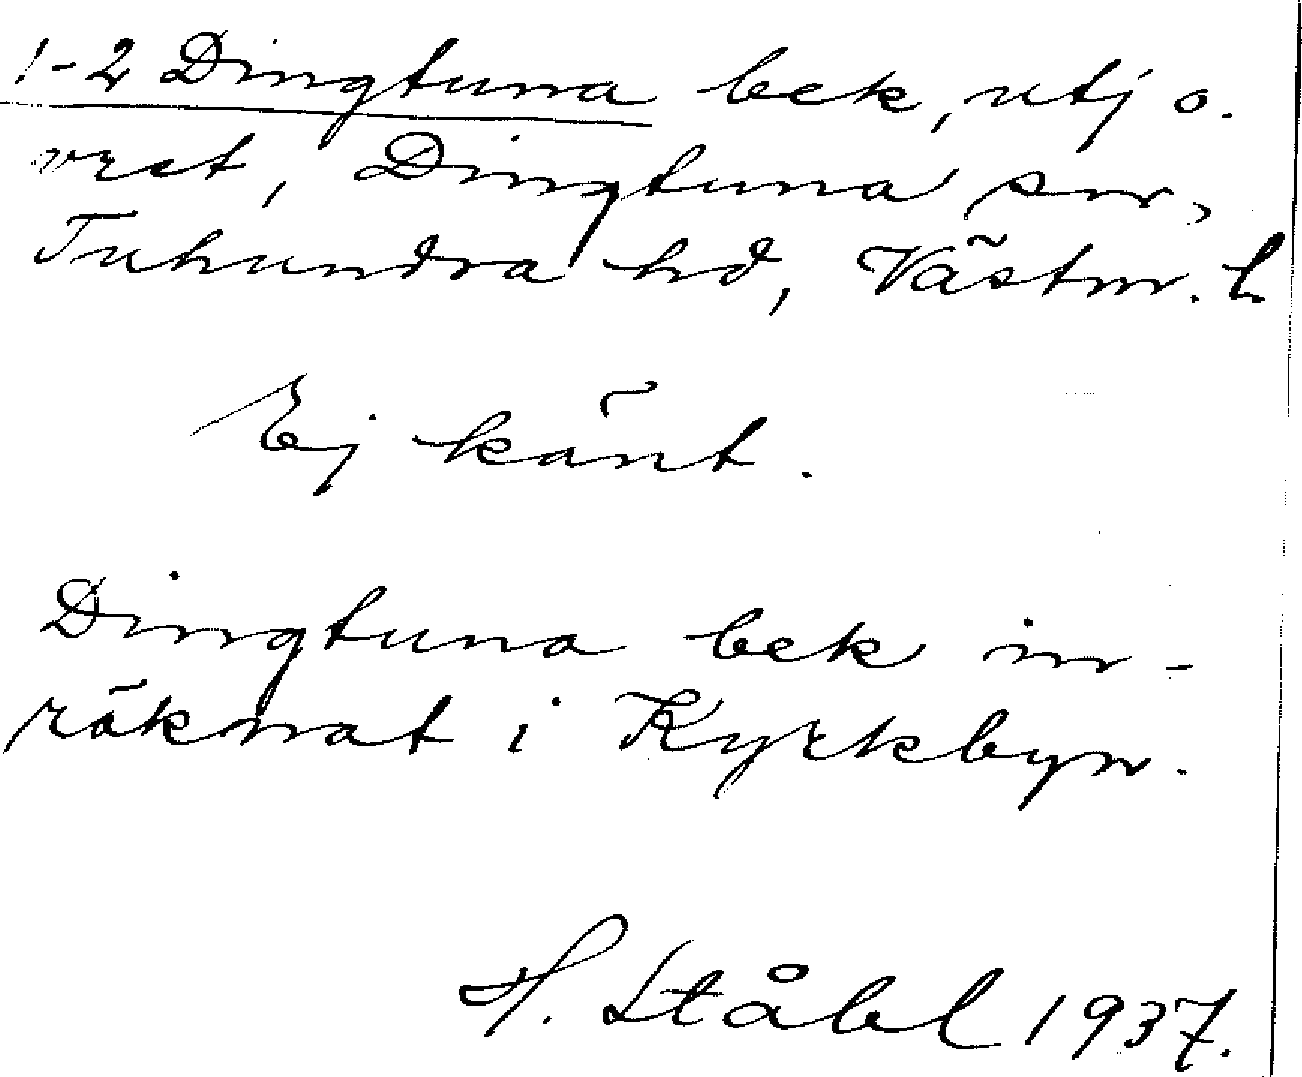 1-2 Dingtuna bek, utj o.
vret, Dingtuna sn,
Tuhundra hd, Västm. l.
Ej känt.
Dingtuna bek in-
räknat i Kyrkbyn.
H. Ståhl 1937.